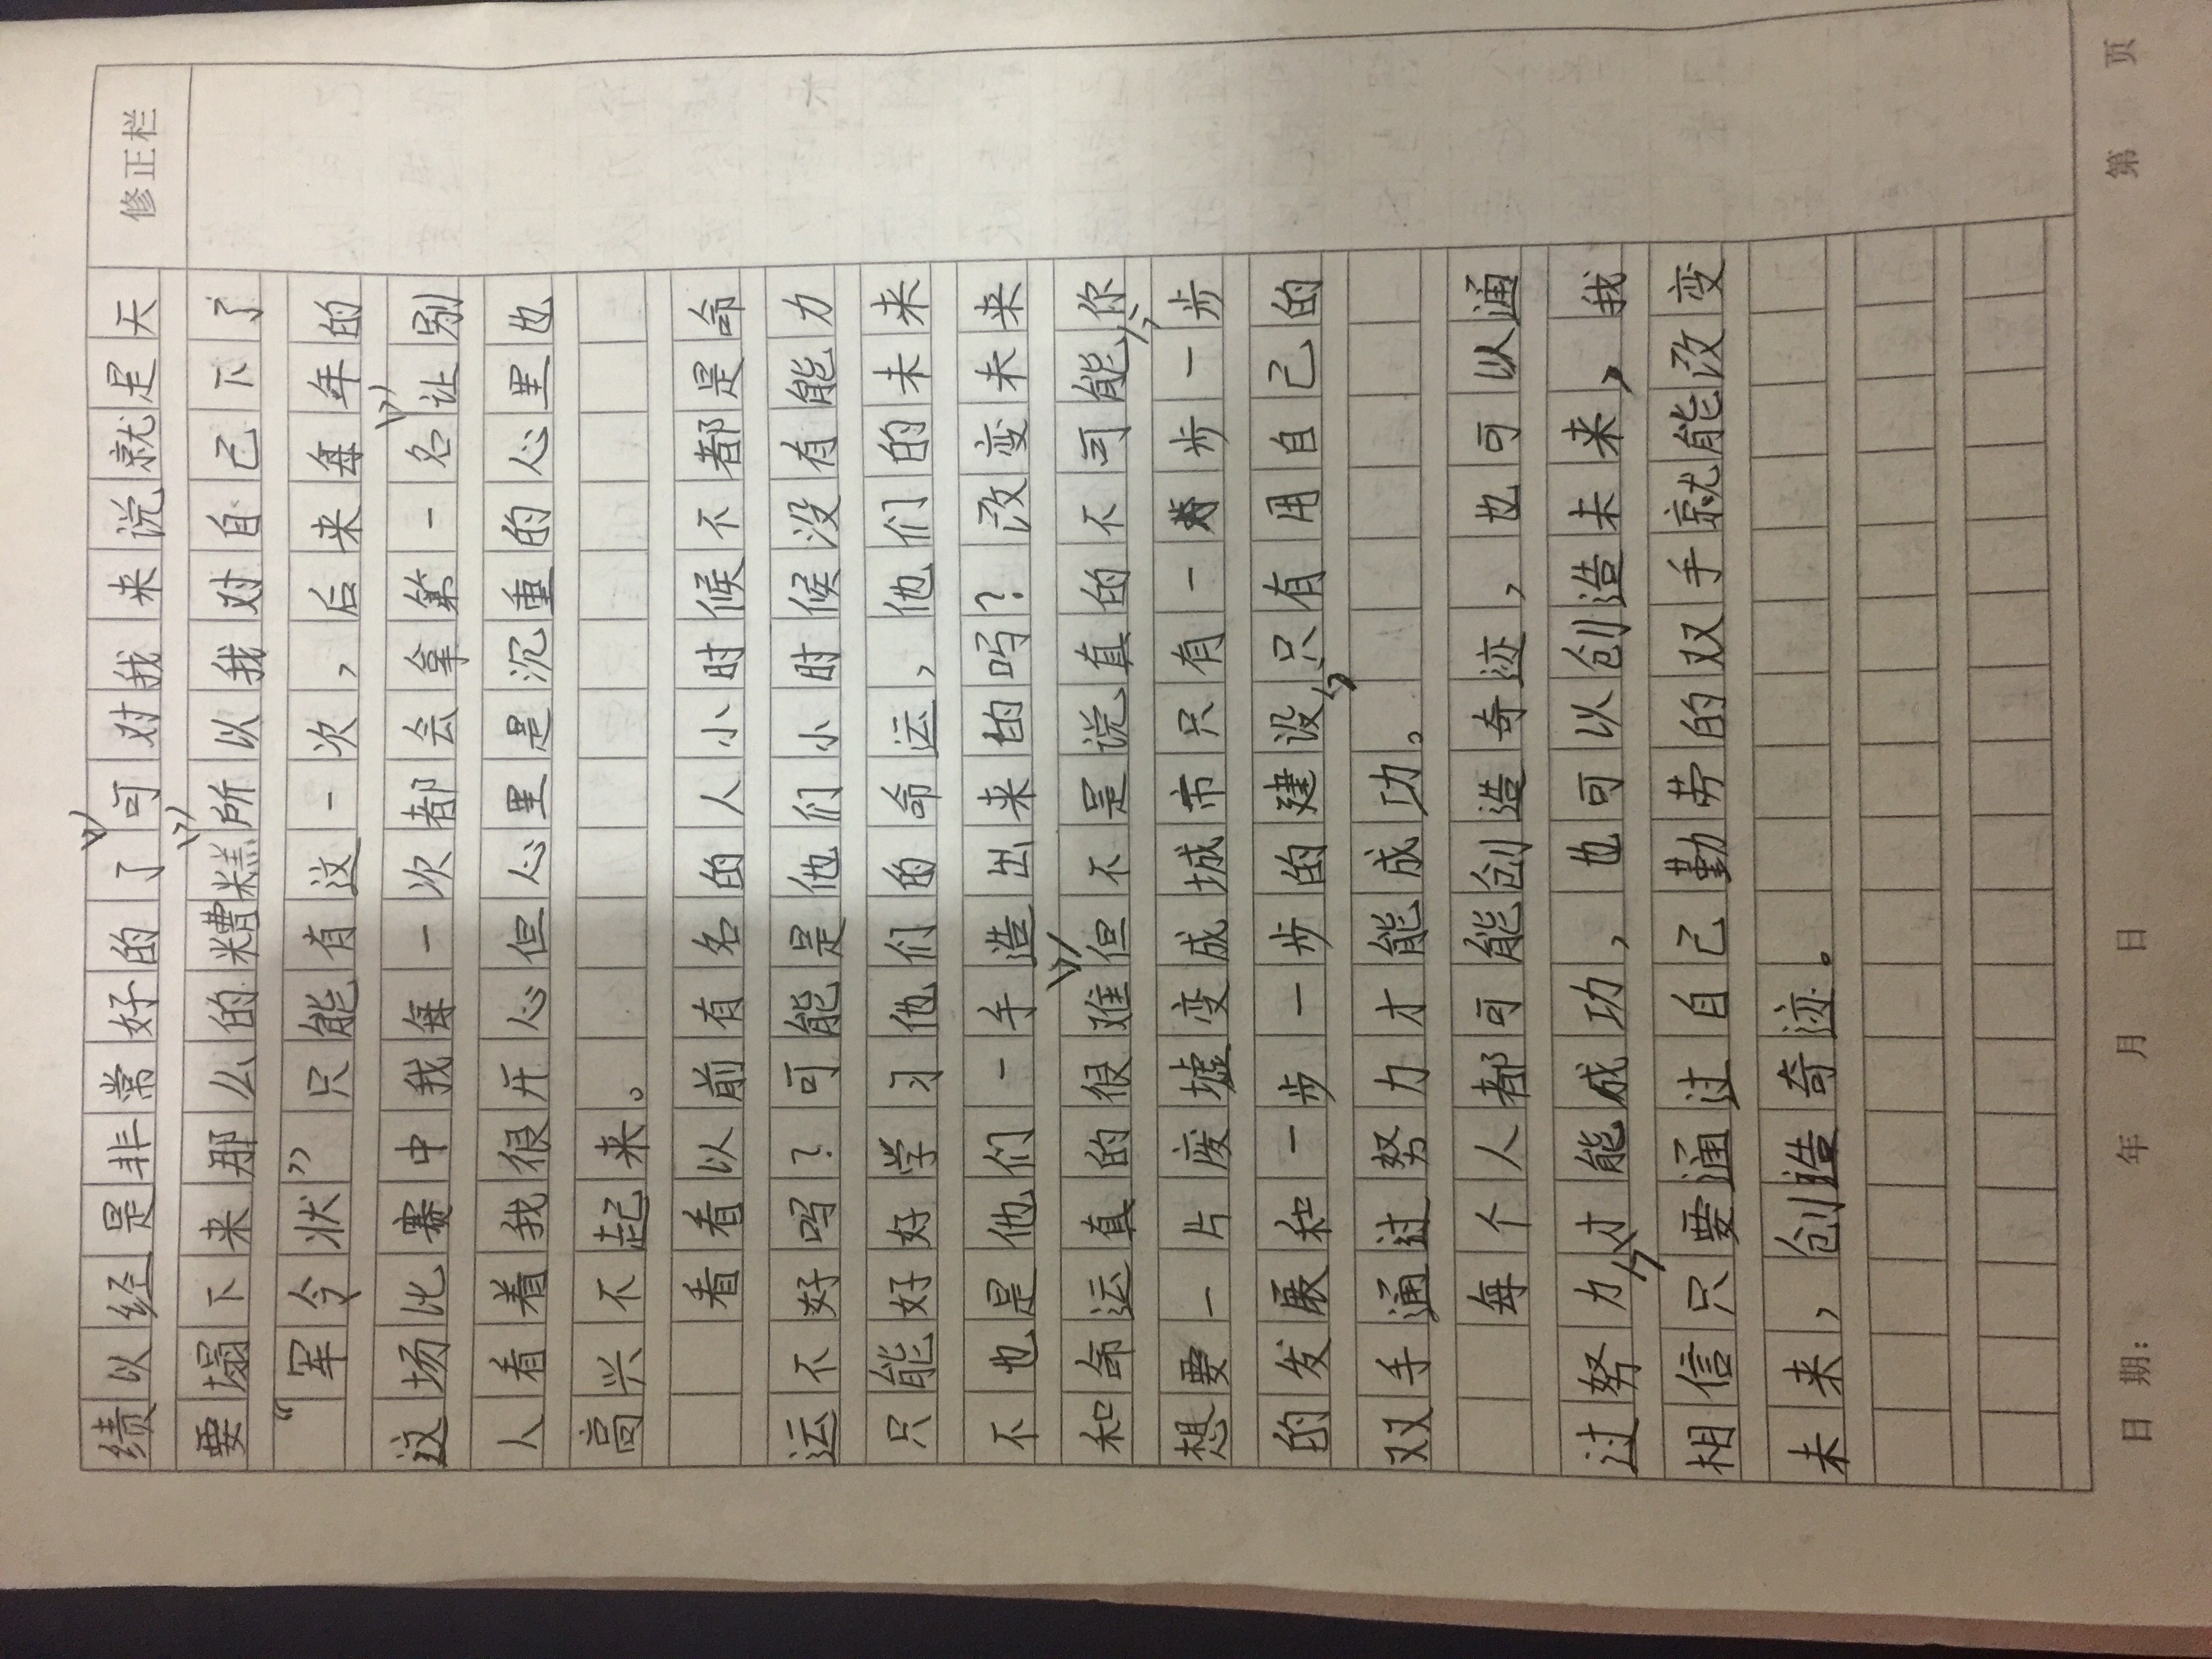 修正栏
绩以经是非常好的了,可对我来说就是天
要塌下来那么的糟糕,所以我对自己下了
“军令状”只能有这一次,后来每年的
这场比赛中我每一次都会拿第一名,让别
人看着我很开心但心里是沉重的心里也
高兴不起来。
看看以前有名的人小时候不都是命
运不好吗?可能是他们小时候没有能力
只能好好学习他们的命运,他们的未来
不也是他们一手造出来的吗?改变未来
和命运真的很难,但不是说真的不可能,你
想要一片废墟变成城市只有一步步一步
的发展和一步一步的建设,只有用自己的
双手通过努力才能成功。
每个人都可能创造奇迹,也可以通
过努力,才能成功,也可以创造未来,我
相信只要通过自己勤劳的双手就能改变
未来,创造奇迹。
日期: 年 月 日 第 页